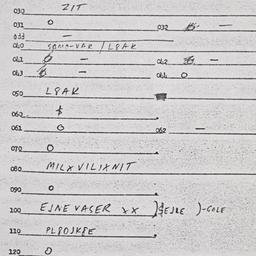 030 ZIT
031 0 032 —
033 —
040 SAMO-VAR / LPAK
041 0 — 042 —
043 — 044 0
050 LPAK
060
061 0 062 —
070 0
080 MILXVILIXNIT
090 0
100 EJNEVAGER XX
110 PLPOJKPE
120 0